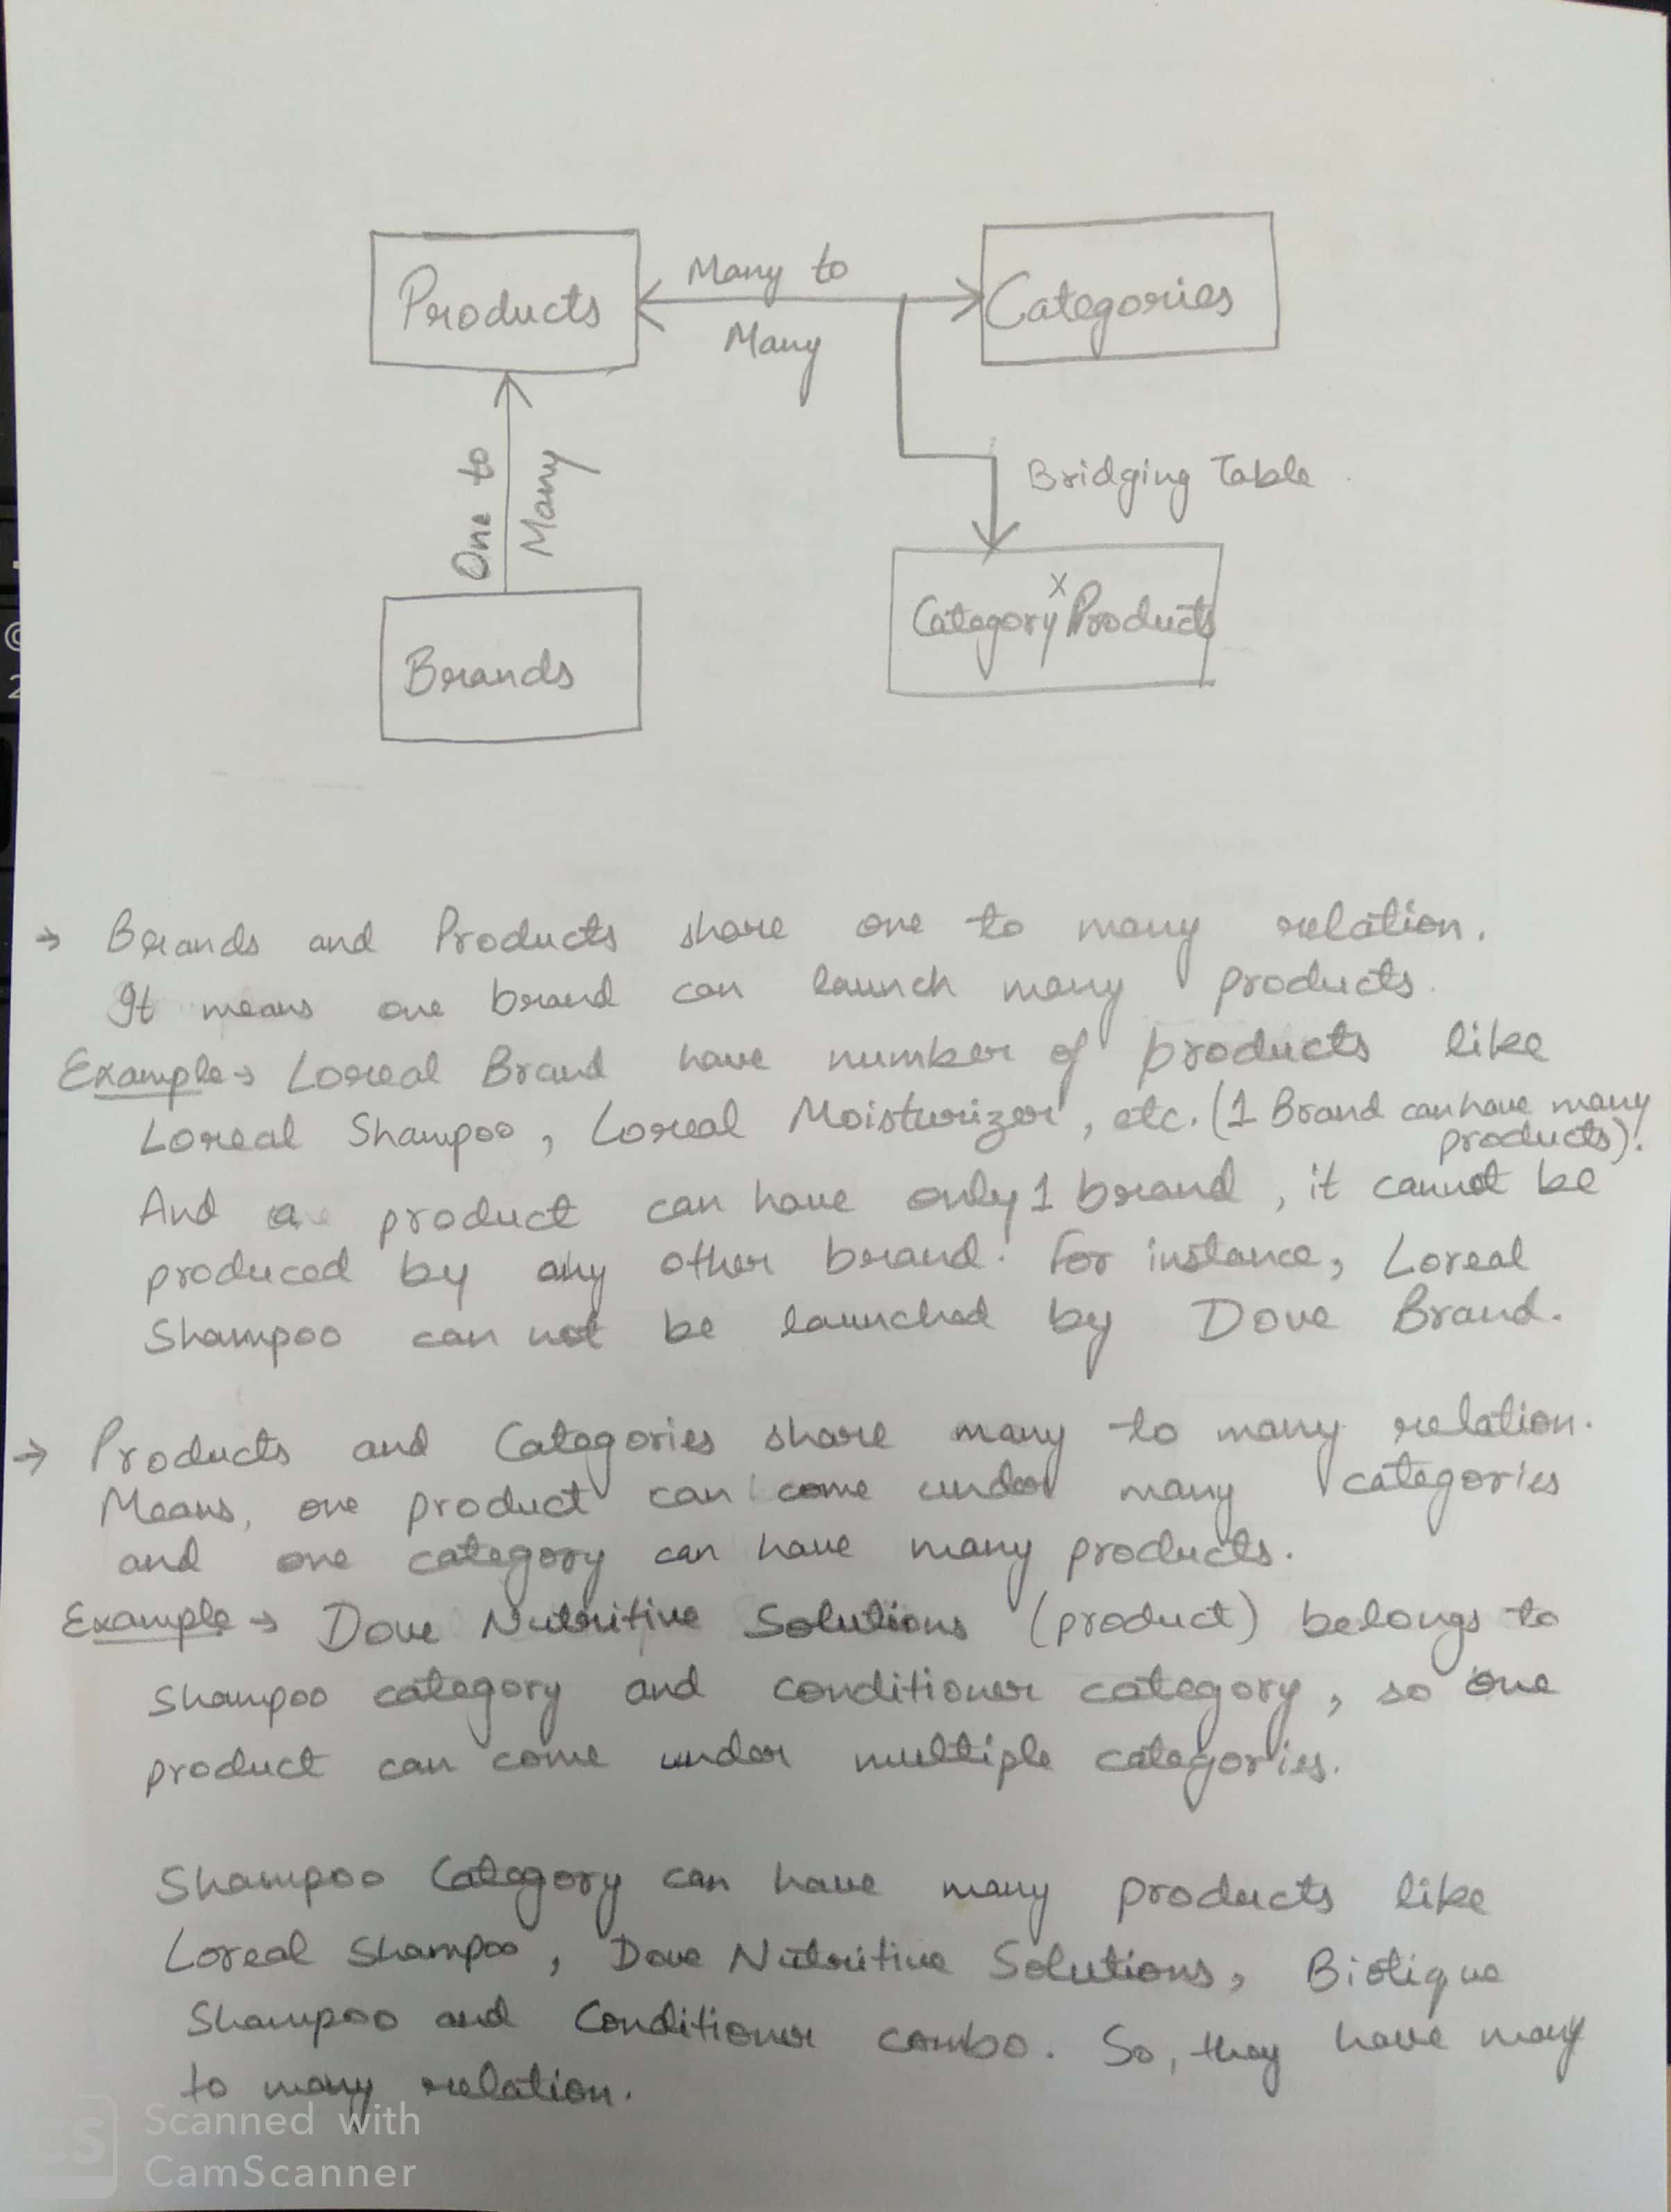 Products
Many to
Many
Categories
One to
Many
Bridging Table
Category x Products
Brands
→ Brands and Products share one to many relation.
It means one brand can launch many products.
Example → Loreal Brand have number of products like
Loreal Shampoo, Loreal Moisturizer, etc. (1 Brand can have many
products).
And a product can have only 1 brand, it cannot be
produced by any other brand. For instance, Loreal
Shampoo can not be launched by Dove Brand.
→ Products and Categories share many to many relation.
Means, one product can come under many categories
and one category can have many products.
Example → Dove Nutritive Solutions (product) belongs to
Shampoo category and conditioner category, so one
product can come under multiple categories.
Shampoo Category can have many products like
Loreal Shampoo, Dove Nutritive Solutions, Biotique
Shampoo and Conditioner combo. So, they have many
to many relation.
CS
Scanned with
CamScanner